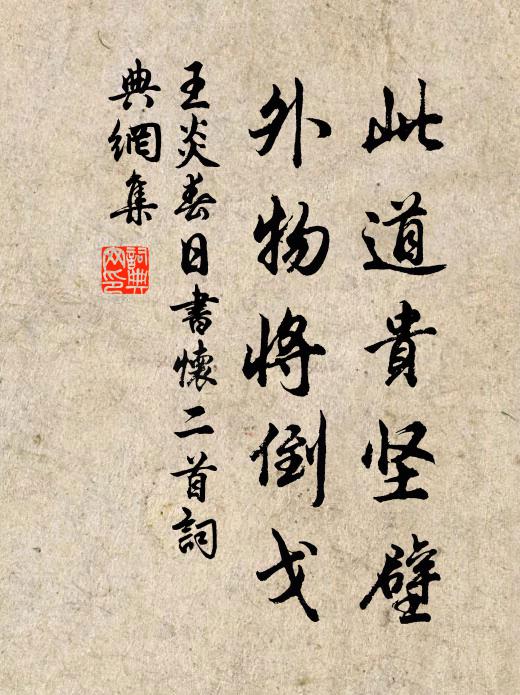 此道貴坚壁
外物将倒戈
王炎春日書懷二首詞
典網集
詞典